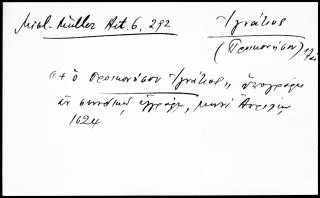 Mikl.-Müller Act. 6, 292
Ἰγνάτιος
(Προικονήσου)
"+ ὁ Προικονήσου Ἰγνάτιος" ὑπογράφει
ἐν συνοδικῷ ἐγγράφῳ, μηνὶ Ἀπριλίῳ
1624